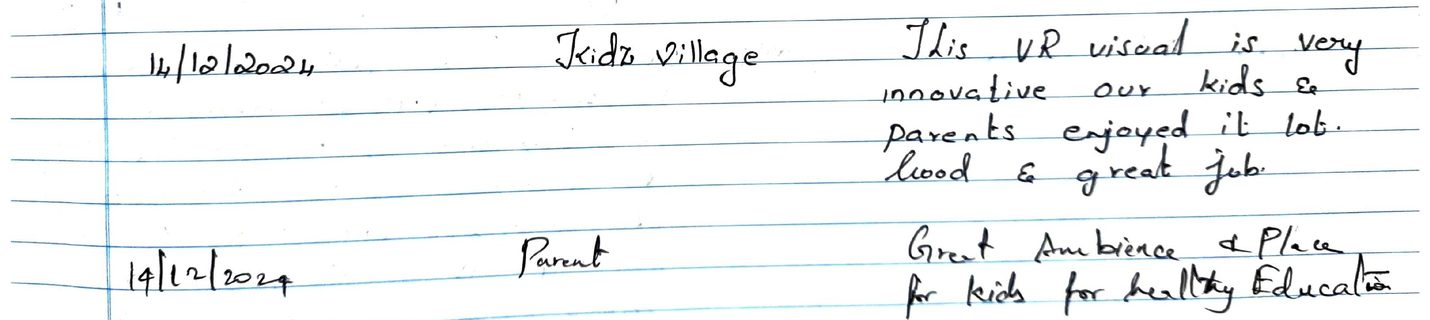 14/12/2024 Kidz Village This VR visual is very
innovative our kids &
parents enjoyed it lot.
Good & great job.
14/12/2024 Parent Great Ambience & Place
for kids for healthy Education